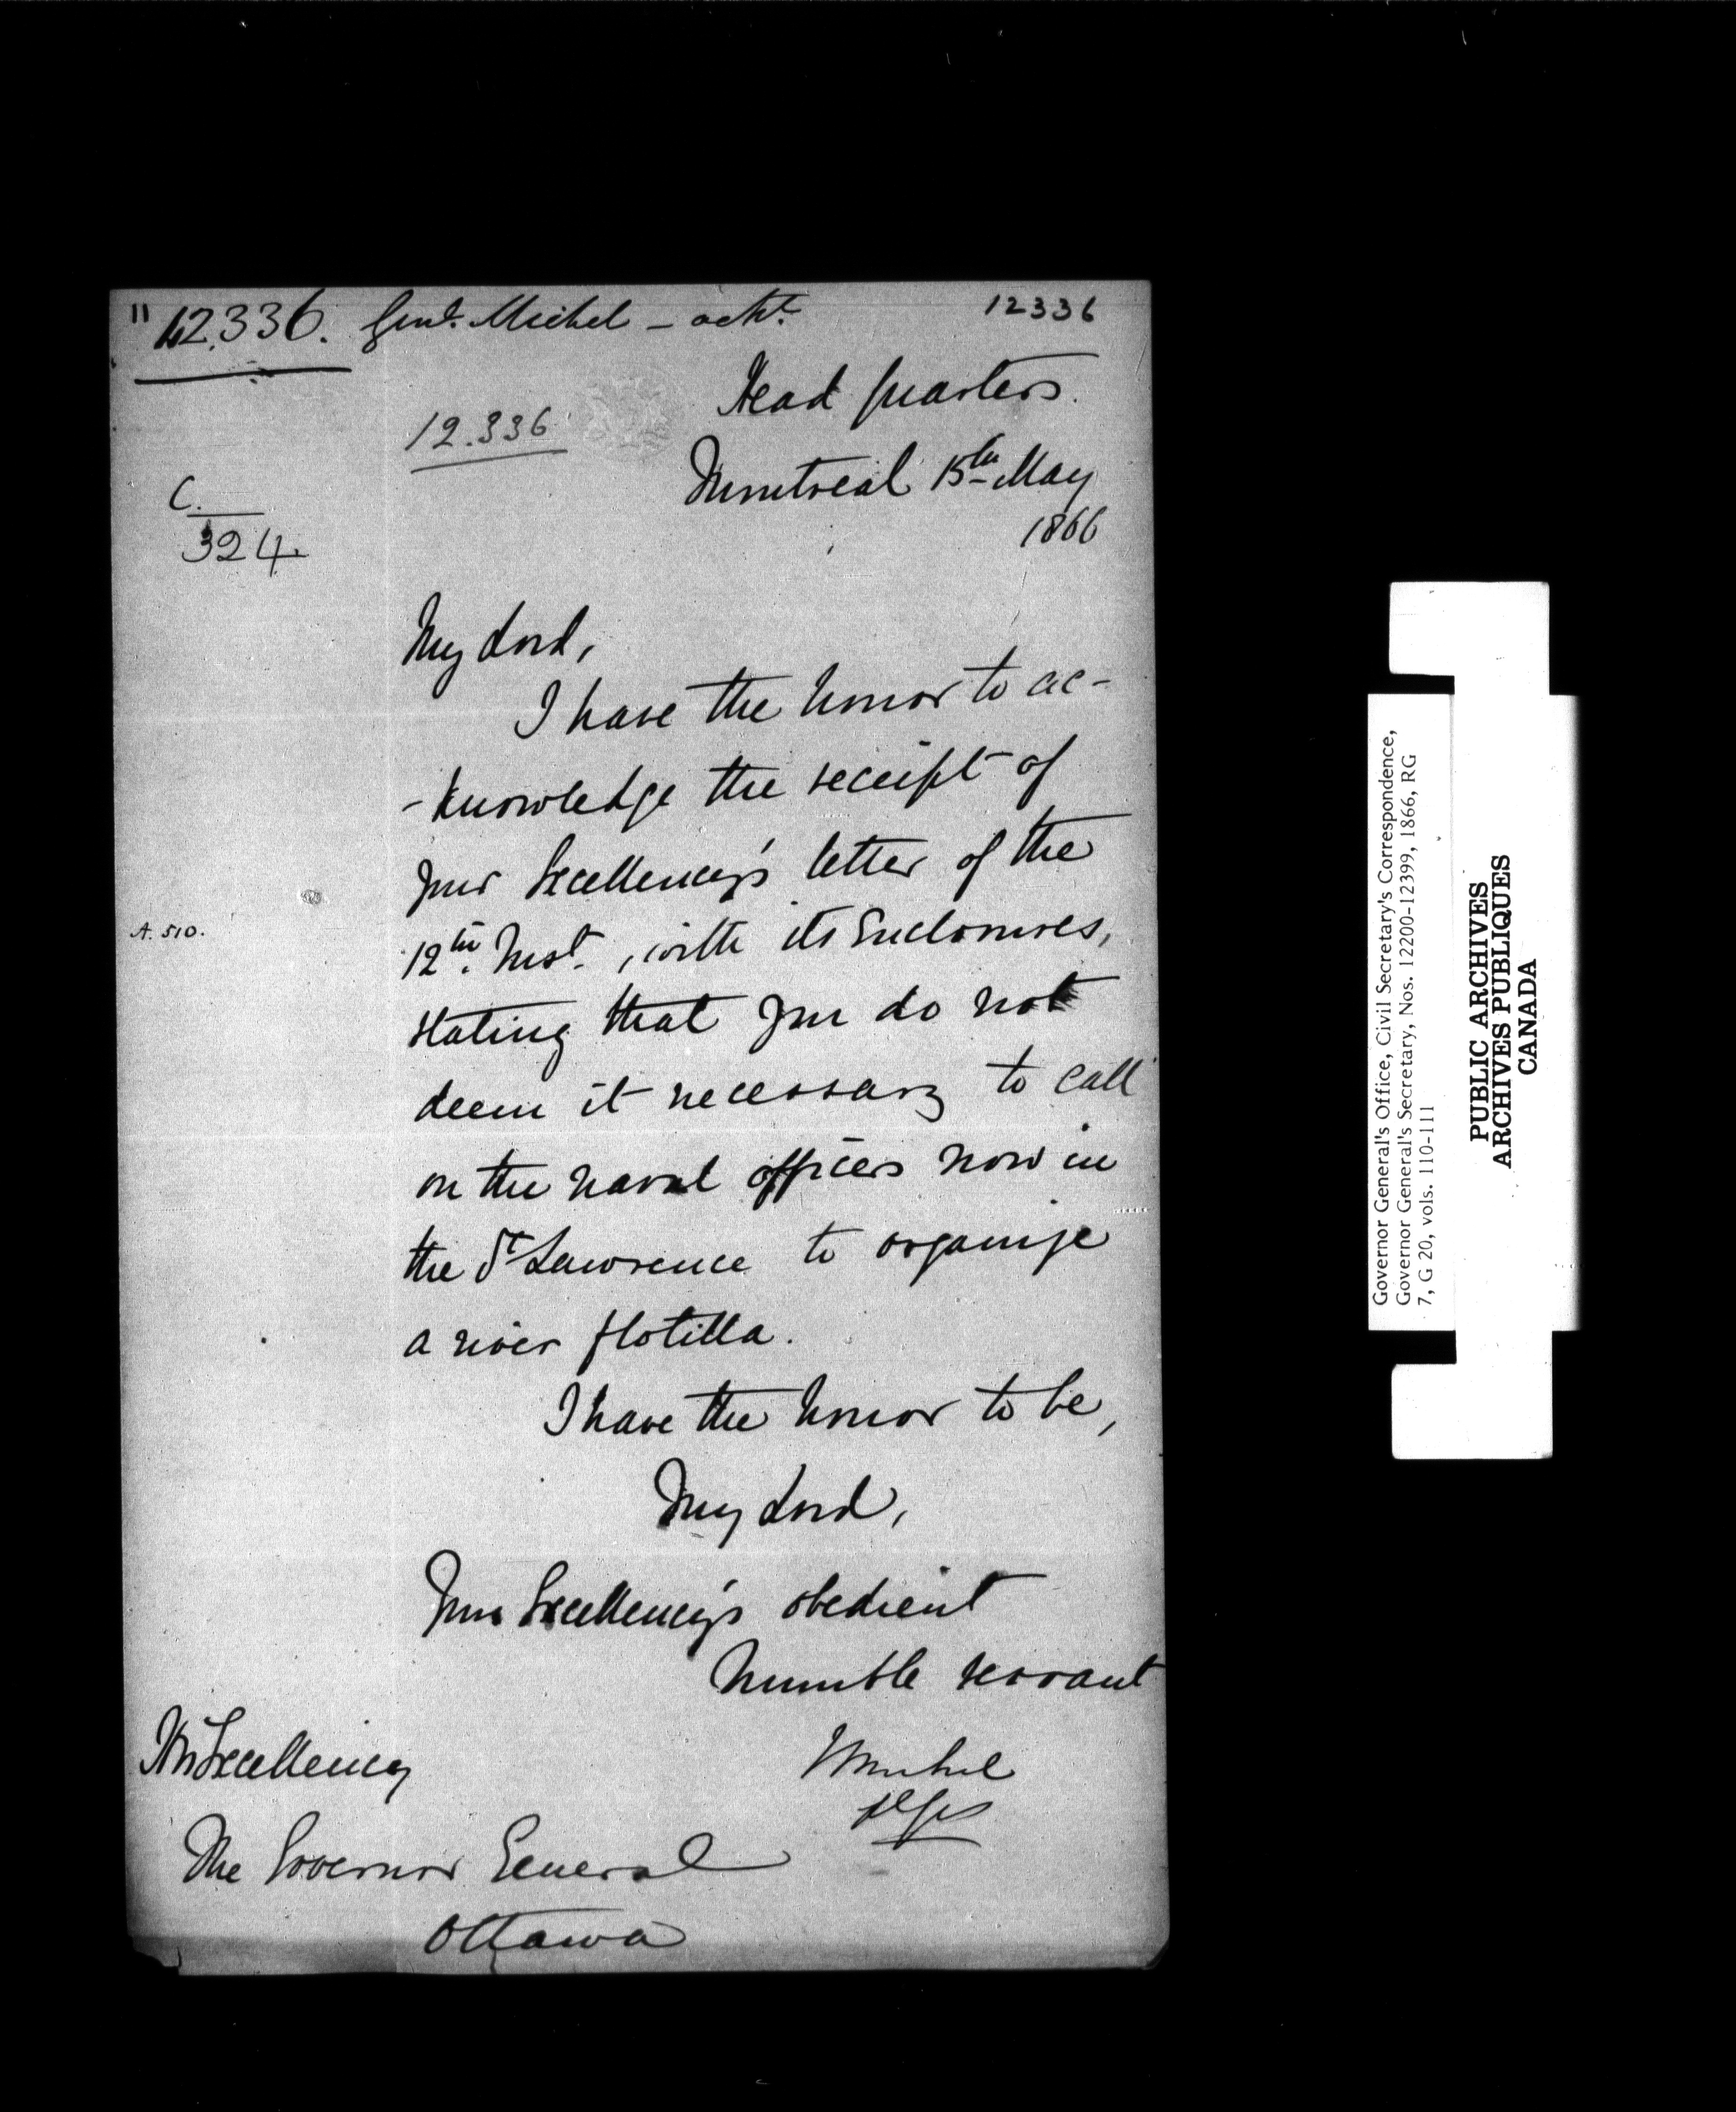 " 12.336. Genl. Michel – ackt.
12336
Head Quarters.
12.336
Montreal 15th May
1866
C.
324.
My Lord,
I have the honor to ac-
-knowledge the receipt of
your Excellency's letter of the
A. 510.
12th. Inst., with its Enclosures,
stating that you do not
deem it necessary to call
on the naval officers now in
the St Lawrence to organize
a river flotilla.
I have the honor to be,
My Lord,
Your Excellency's obedient
humble servant
His Excellency
Michel
The Governor General
Ottawa
Governor General's Office, Civil Secretary's Correspondence,
Governor General's Secretary, Nos. 12200-12399, 1866, RG
7, G 20, vols. 110-111
PUBLIC ARCHIVES
ARCHIVES PUBLIQUES
CANADA